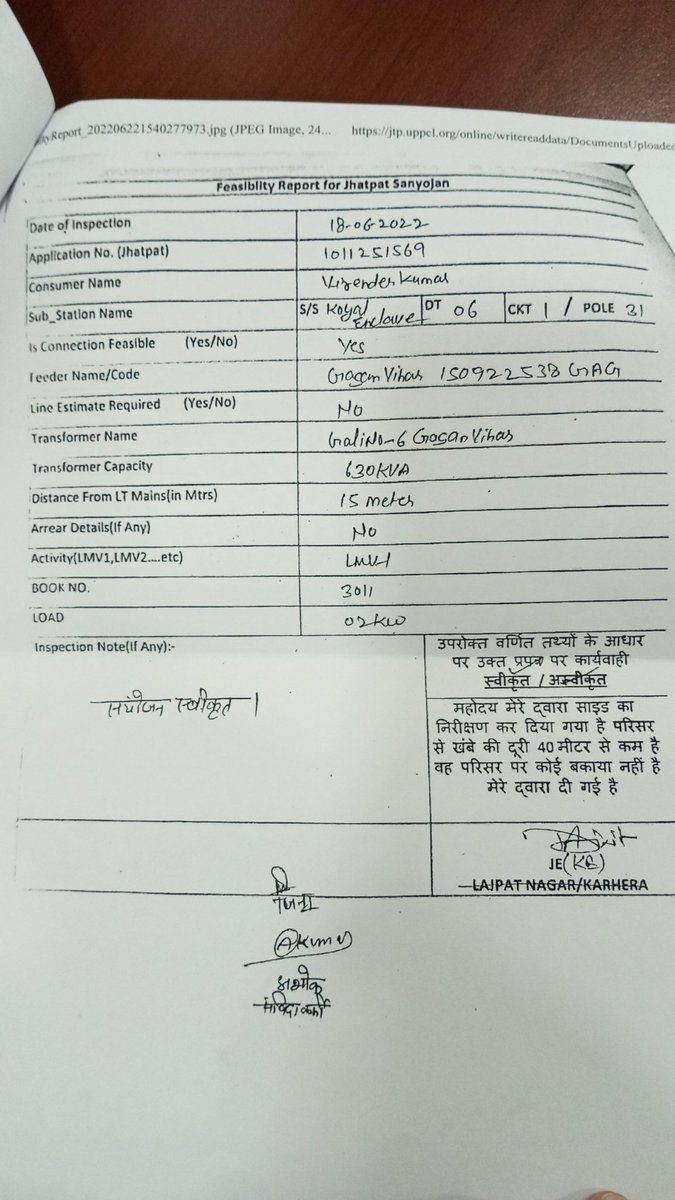 Report_202206221540277973.jpg (JPEG Image, 24... https://jtp.uppcl.org/online/writereaddata/DocumentsUploaded
Feasiblity Report for Jhatpat Sanyojan
Date of Inspection 18-06-2022
Application No. (Jhatpat) 1011251569
Consumer Name Virender Kumar
Sub_Station Name S/S Koyal Enclave DT 06 CKT 1 / POLE 31
Is Connection Feasible (Yes/No) Yes
Feeder Name/Code Gagan Vihar 150922538 GAG
Line Estimate Required (Yes/No) No
Transformer Name Gali No-6 Gagan Vihar
Transformer Capacity 630KVA
Distance From LT Mains(in Mtrs) 15 meter
Arrear Details(If Any) No
Activity(LMV1,LMV2....etc) LMV-1
BOOK NO. 3011
LOAD 02KW
Inspection Note(If Any):-
संयोजन स्वीकृत ।
उपरोक्त वर्णित तथ्यों के आधार
पर उक्त प्रपत्र पर कार्यवाही
स्वीकृत / अस्वीकृत
महोदय मेरे द्वारा साइड का
निरीक्षण कर दिया गया है परिसर
से खंबे की दूरी 40 मीटर से कम है
वह परिसर पर कोई बकाया नहीं है
मेरे द्वारा दी गई है
JE (KE)
LAJPAT NAGAR/KARHERA
AKumar
संविदाकर्मी